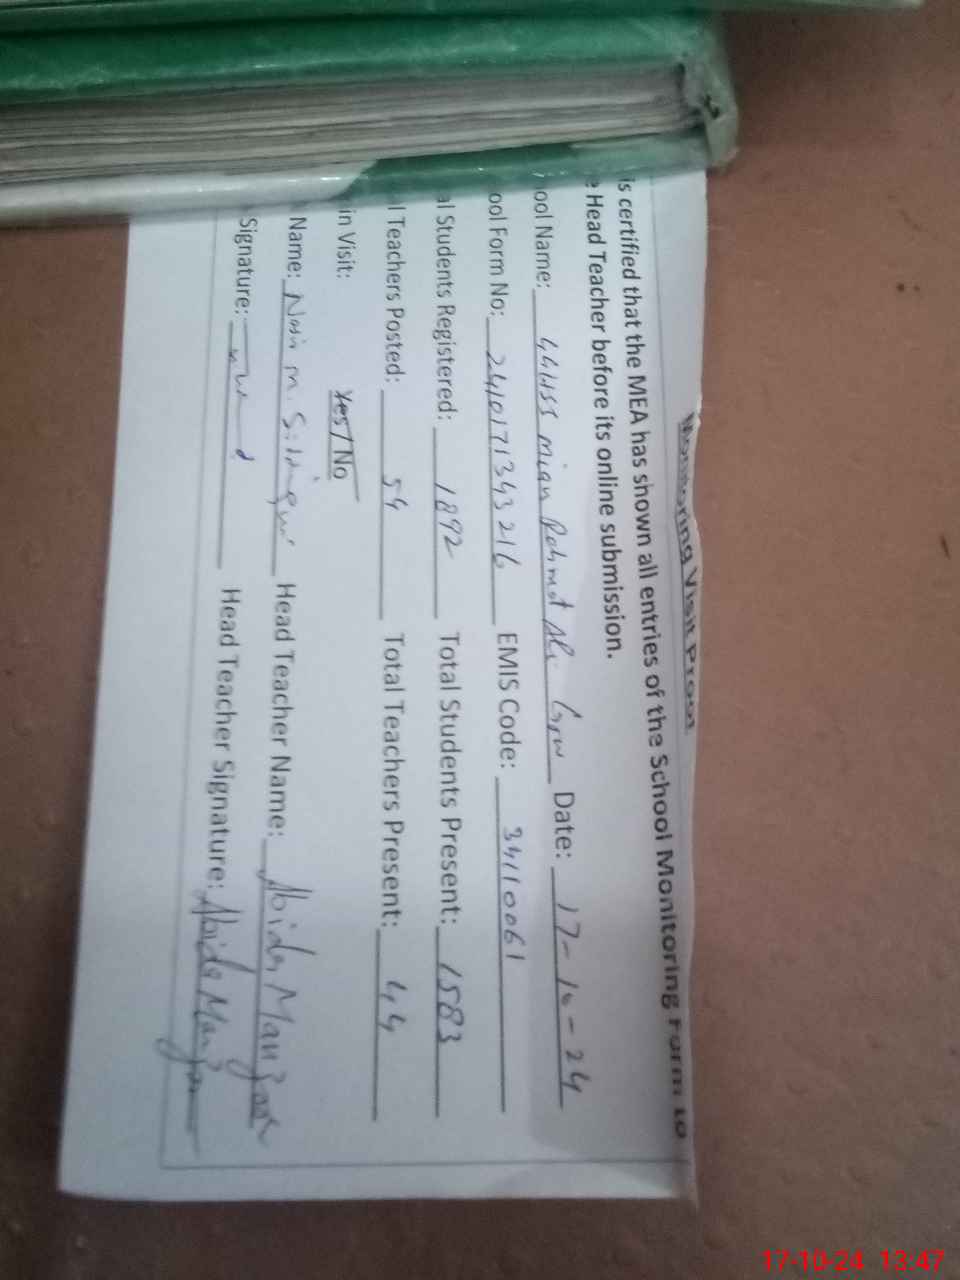 Monitoring Visit Proof
is certified that the MEA has shown all entries of the School Monitoring Form to
e Head Teacher before its online submission.
ool Name: GGHSS mian Rahmat Ali Grw Date: 17-10-24
ool Form No: 2410171343216 EMIS Code: 34110061
al Students Registered: 1892 Total Students Present: 1583
l Teachers Posted: 54 Total Teachers Present: 44
in Visit: Yes/No
Name: m. Head Teacher Name: Abida Manzoor
Signature: Head Teacher Signature: Abida Manzoor
17-10-24 13:47